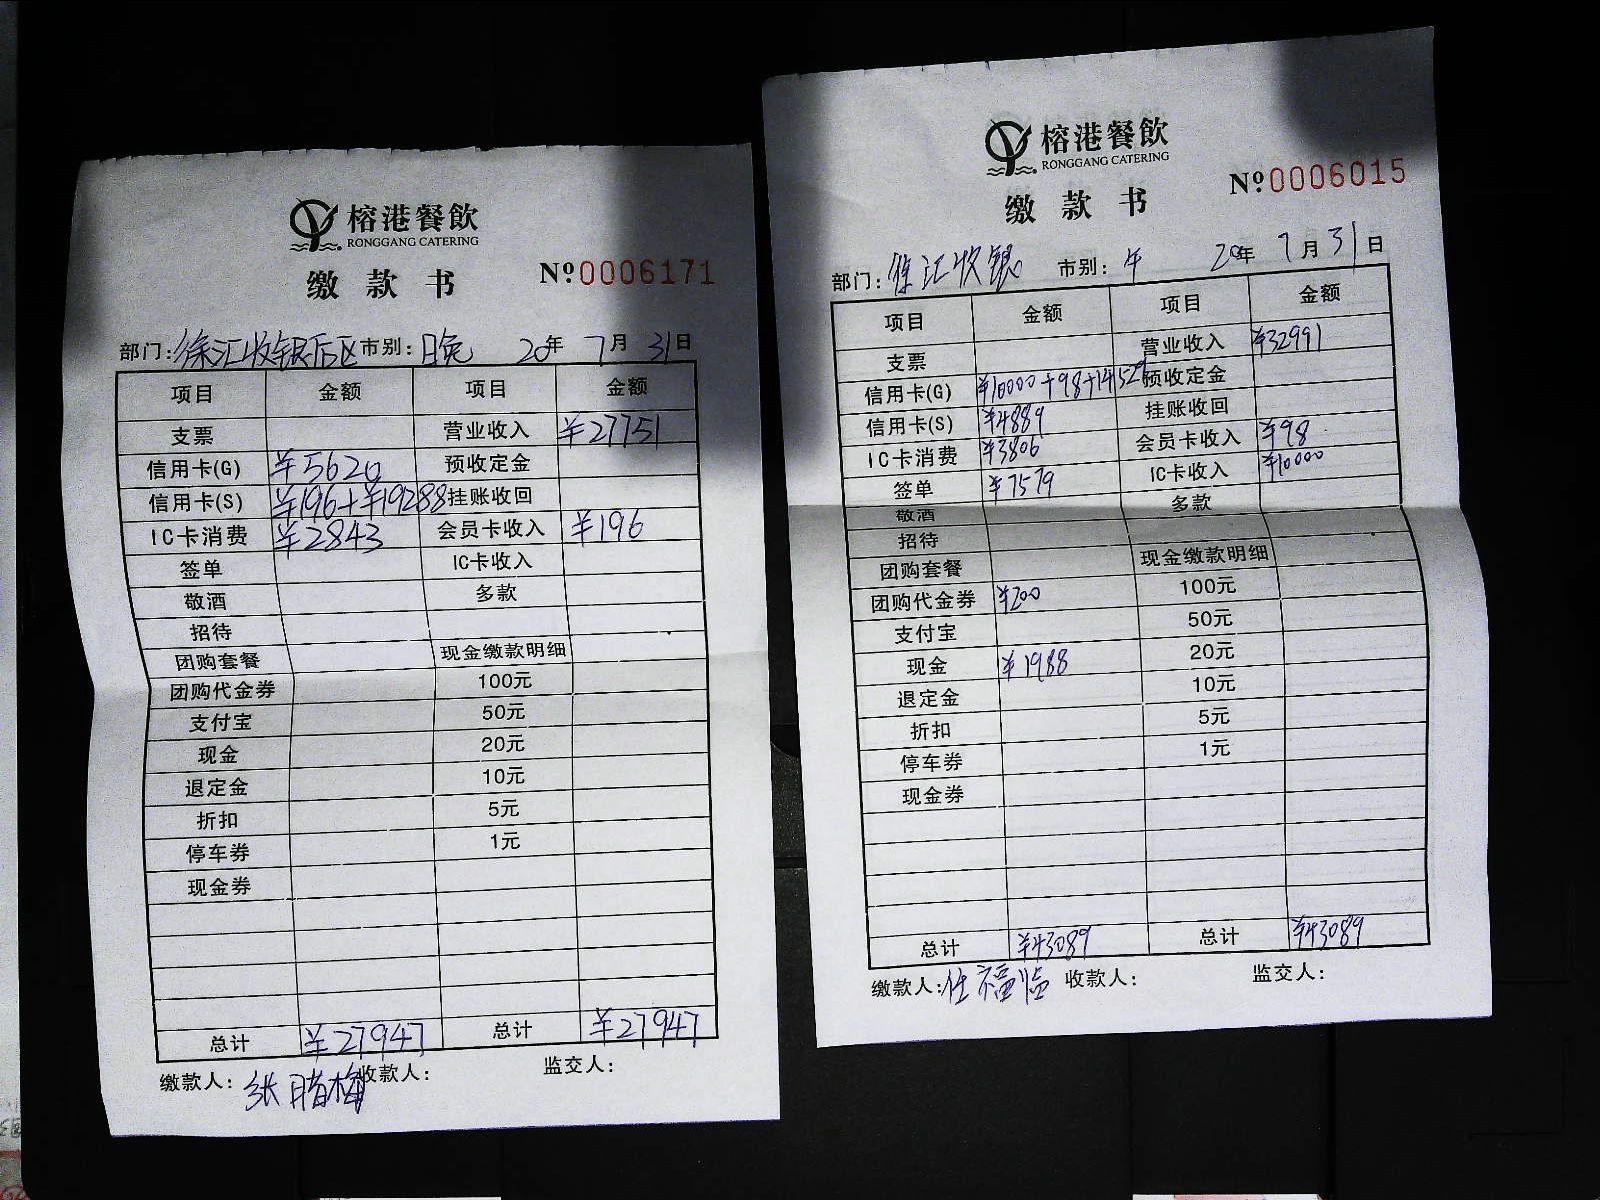 榕港餐飲
RONGGANG CATERING
缴款书
Nº0006171
部门:徐汇收银后区 市别:晚 20年 7月 31日
项目 金额 项目 金额
支票 营业收入 ¥27751
信用卡(G) ¥5620 预收定金
信用卡(S) ¥196+¥19288 挂账收回
IC卡消费 ¥2843 会员卡收入 ¥196
签单 IC卡收入
敬酒 多款
招待
团购套餐 现金缴款明细
团购代金券 100元
支付宝 50元
现金 20元
退定金 10元
折扣 5元
停车券 1元
现金券
总计 ¥27947 总计 ¥27947
缴款人:张腊梅 收款人: 监交人:
榕港餐飲
RONGGANG CATERING
缴款书
Nº0006015
部门:徐汇收银 市别:午 20年 7月 31日
项目 金额 项目 金额
支票 营业收入 ¥32991
信用卡(G) ¥10000+98+14529 预收定金
信用卡(S) ¥4889 挂账收回
IC卡消费 ¥3806 会员卡收入 ¥98
签单 ¥7579 IC卡收入 ¥10000
敬酒 多款
招待
团购套餐 现金缴款明细
团购代金券 ¥200 100元
支付宝 50元
现金 ¥1988 20元
退定金 10元
折扣 5元
停车券 1元
现金券
总计 ¥43089 总计 ¥43089
缴款人: 收款人: 监交人: